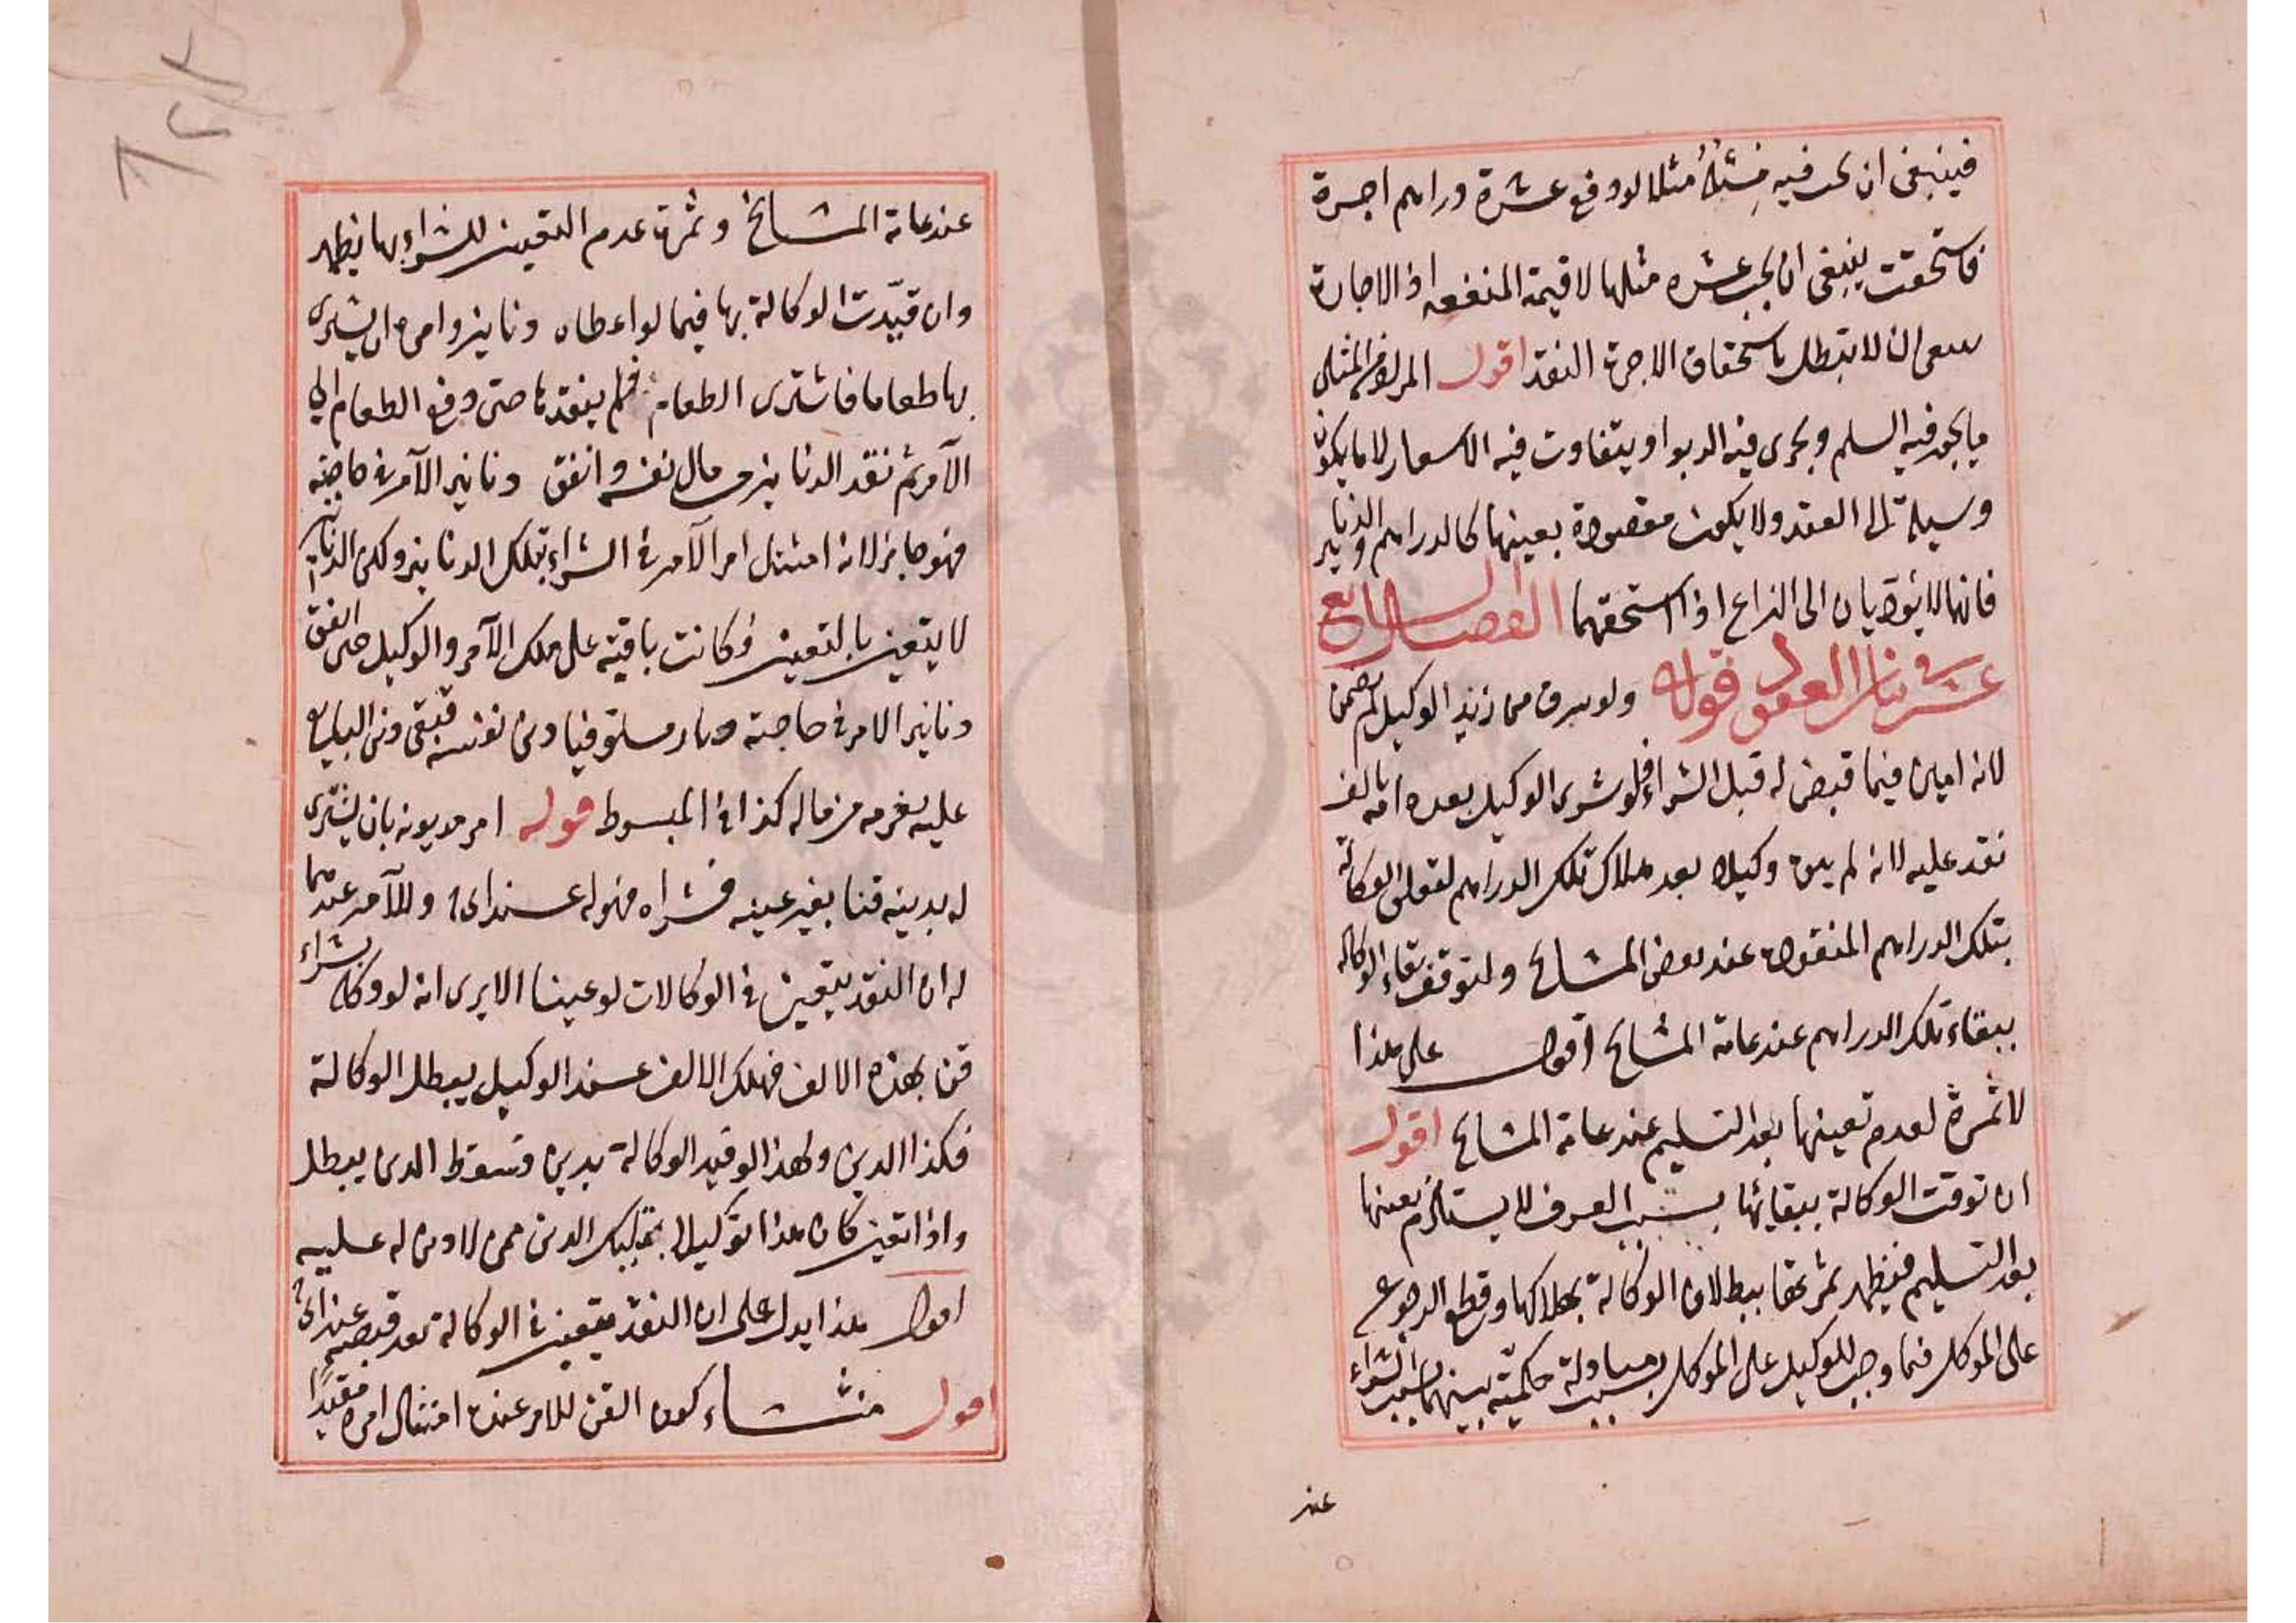 فينبغي ان يجب فيه مثله مثلا لو دفع عشرة دراهم اجرة
فاستحقت ينبغي ان يجب عشره مثلها لا قيمة المنفعه اذ الاجارة
ينبغي ان لا تبطل باستحقاق الاجرة النقد اقول المراد من المثلي
ما يجوز فيه السلم ويجري فيه الربوا ويتفاوت فيه الاسعار لا ما يكون
وسيلة الى العقد ولا يكون مقصودة بعينها كالدراهم والدنانير
فانها لا يؤديان الى النزاع اذا استحقهما الفصل السابع
عشر في قوله ولو سرق من زيد الوكيل لم يضمن
لانه امين فيما قبض له قبل الشراء فلو شرى الوكيل بعده امة بالف
نفد عليه لانه لم يبق وكيلا بعد هلاك تلك الدراهم لتعلق الوكالة
بتلك الدراهم المنقودة عند بعض المشايخ ولتوقف بقاء الوكالة
ببقاء تلك الدراهم عند عامة المشايخ اقول على هذا
لا ثمرة لعدم تعينها بعد التسليم عند عامة المشايخ اقول
ان توقت الوكالة ببقائها بسبب العرف لا يستلزم تعينها
بعد التسليم فيظهر ببطلان الوكالة بهلاكها وقطع الرجوع
على الموكل فيما وجب للوكيل على الموكل بسبب مبادلة حكمية بينهما بسبب الشراء
عند
عند عامة المشايخ وثمرة عدم التعين للشراء بها يظهر
وان قيدت الوكالة بها فيما لو اعطاه دنانيز وامره ان يشتري
بها طعاما فاشترى الطعام فلم ينقدها حتى دفع الطعام الى
الآمر ثم نقد الدنانيز من مال نفسه وانفق دنانير الآمر في حاجته
فهو جايز لانه امتثل امر الآمر في الشراء بتلك الدنانيز ولكن الدنانير
لا يتعين بالتعين وكانت باقية على ملك الآمر والوكيل حتى انفق
دنانير الامر في حاجته صار مستوفيا دين نفسه فبقي دين البايع
عليه يغرمه من ماله كذا في المبسوط قوله امر مديونه بان يشترى
له بدينه قنا بغير عينه فشراه فهو له عند ابي ح وللآمر عندهما
له ان النقد يتعين في الوكالات لو عينا الا يرى انه لو وكله بشراء
قن بهذه الالف فهلك الالف عند الوكيل يبطل الوكالة
فكذا الدين ولهذا لو قيد الوكالة بدين وسقط الدين يبطل
واذا تعين كان هذا توكيلا بتمليك الدين ممن لا دين له عليه
اقول هذا يدل على ان النقد يتعين في الوكالة بعد قبضه عند ابي ح
اقول منشاء كون القن للامر عنده امتثال امره مقيدا